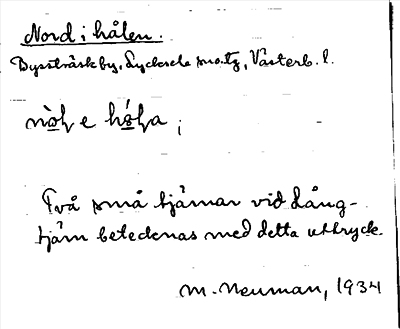 Nord i hålen.
Byssträsk by, Lycksele sn o. tg, Västerb. l.
Två små tjärnar vid Lång-
tjärn betecknas med detta uttryck.
M. Neuman, 1934